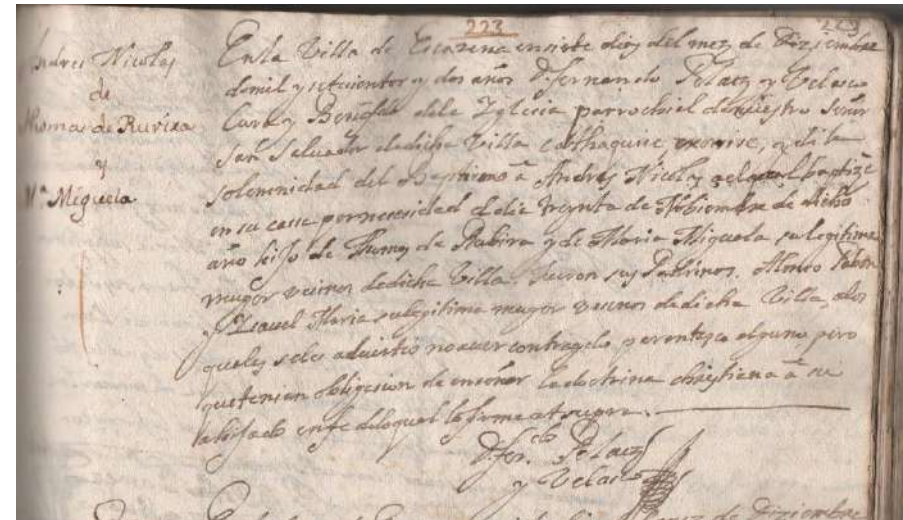 223
Andres Nicolas
de
Thomas de Ruvira
y
Mª. Miguela
En la Villa de Escazena en siete dias del mes de Diziembre
de mil y setecientos y dos años D. fernando Pelaez y Velasco
Cura y Benefdo. de la Yglesia parrochial de nuestro Señor
san Salvador de dicha Villa cathequise, exorcise, y di la
solemnidad del Baptismo â Andres Nicolas al qual baptize
en su casa por necesidad el dia treynta de Nobiembre de dicho
año hijo de Thomas de Rubira y de Maria Miguela su legitima
muger vecinos de dicha Villa. fueron sus Padrinos. Alonso
y Ysavel Maria su legitima muger vecinos de dicha Villa, a los
quales se les advirtio no aver contraydo parentesco alguno pero
que tenian obligacion de enseñar la doctrina christiana â su
ahijado en fe de lo qual lo firme ut supra.
D. fer.do Pelaez
y Velasco